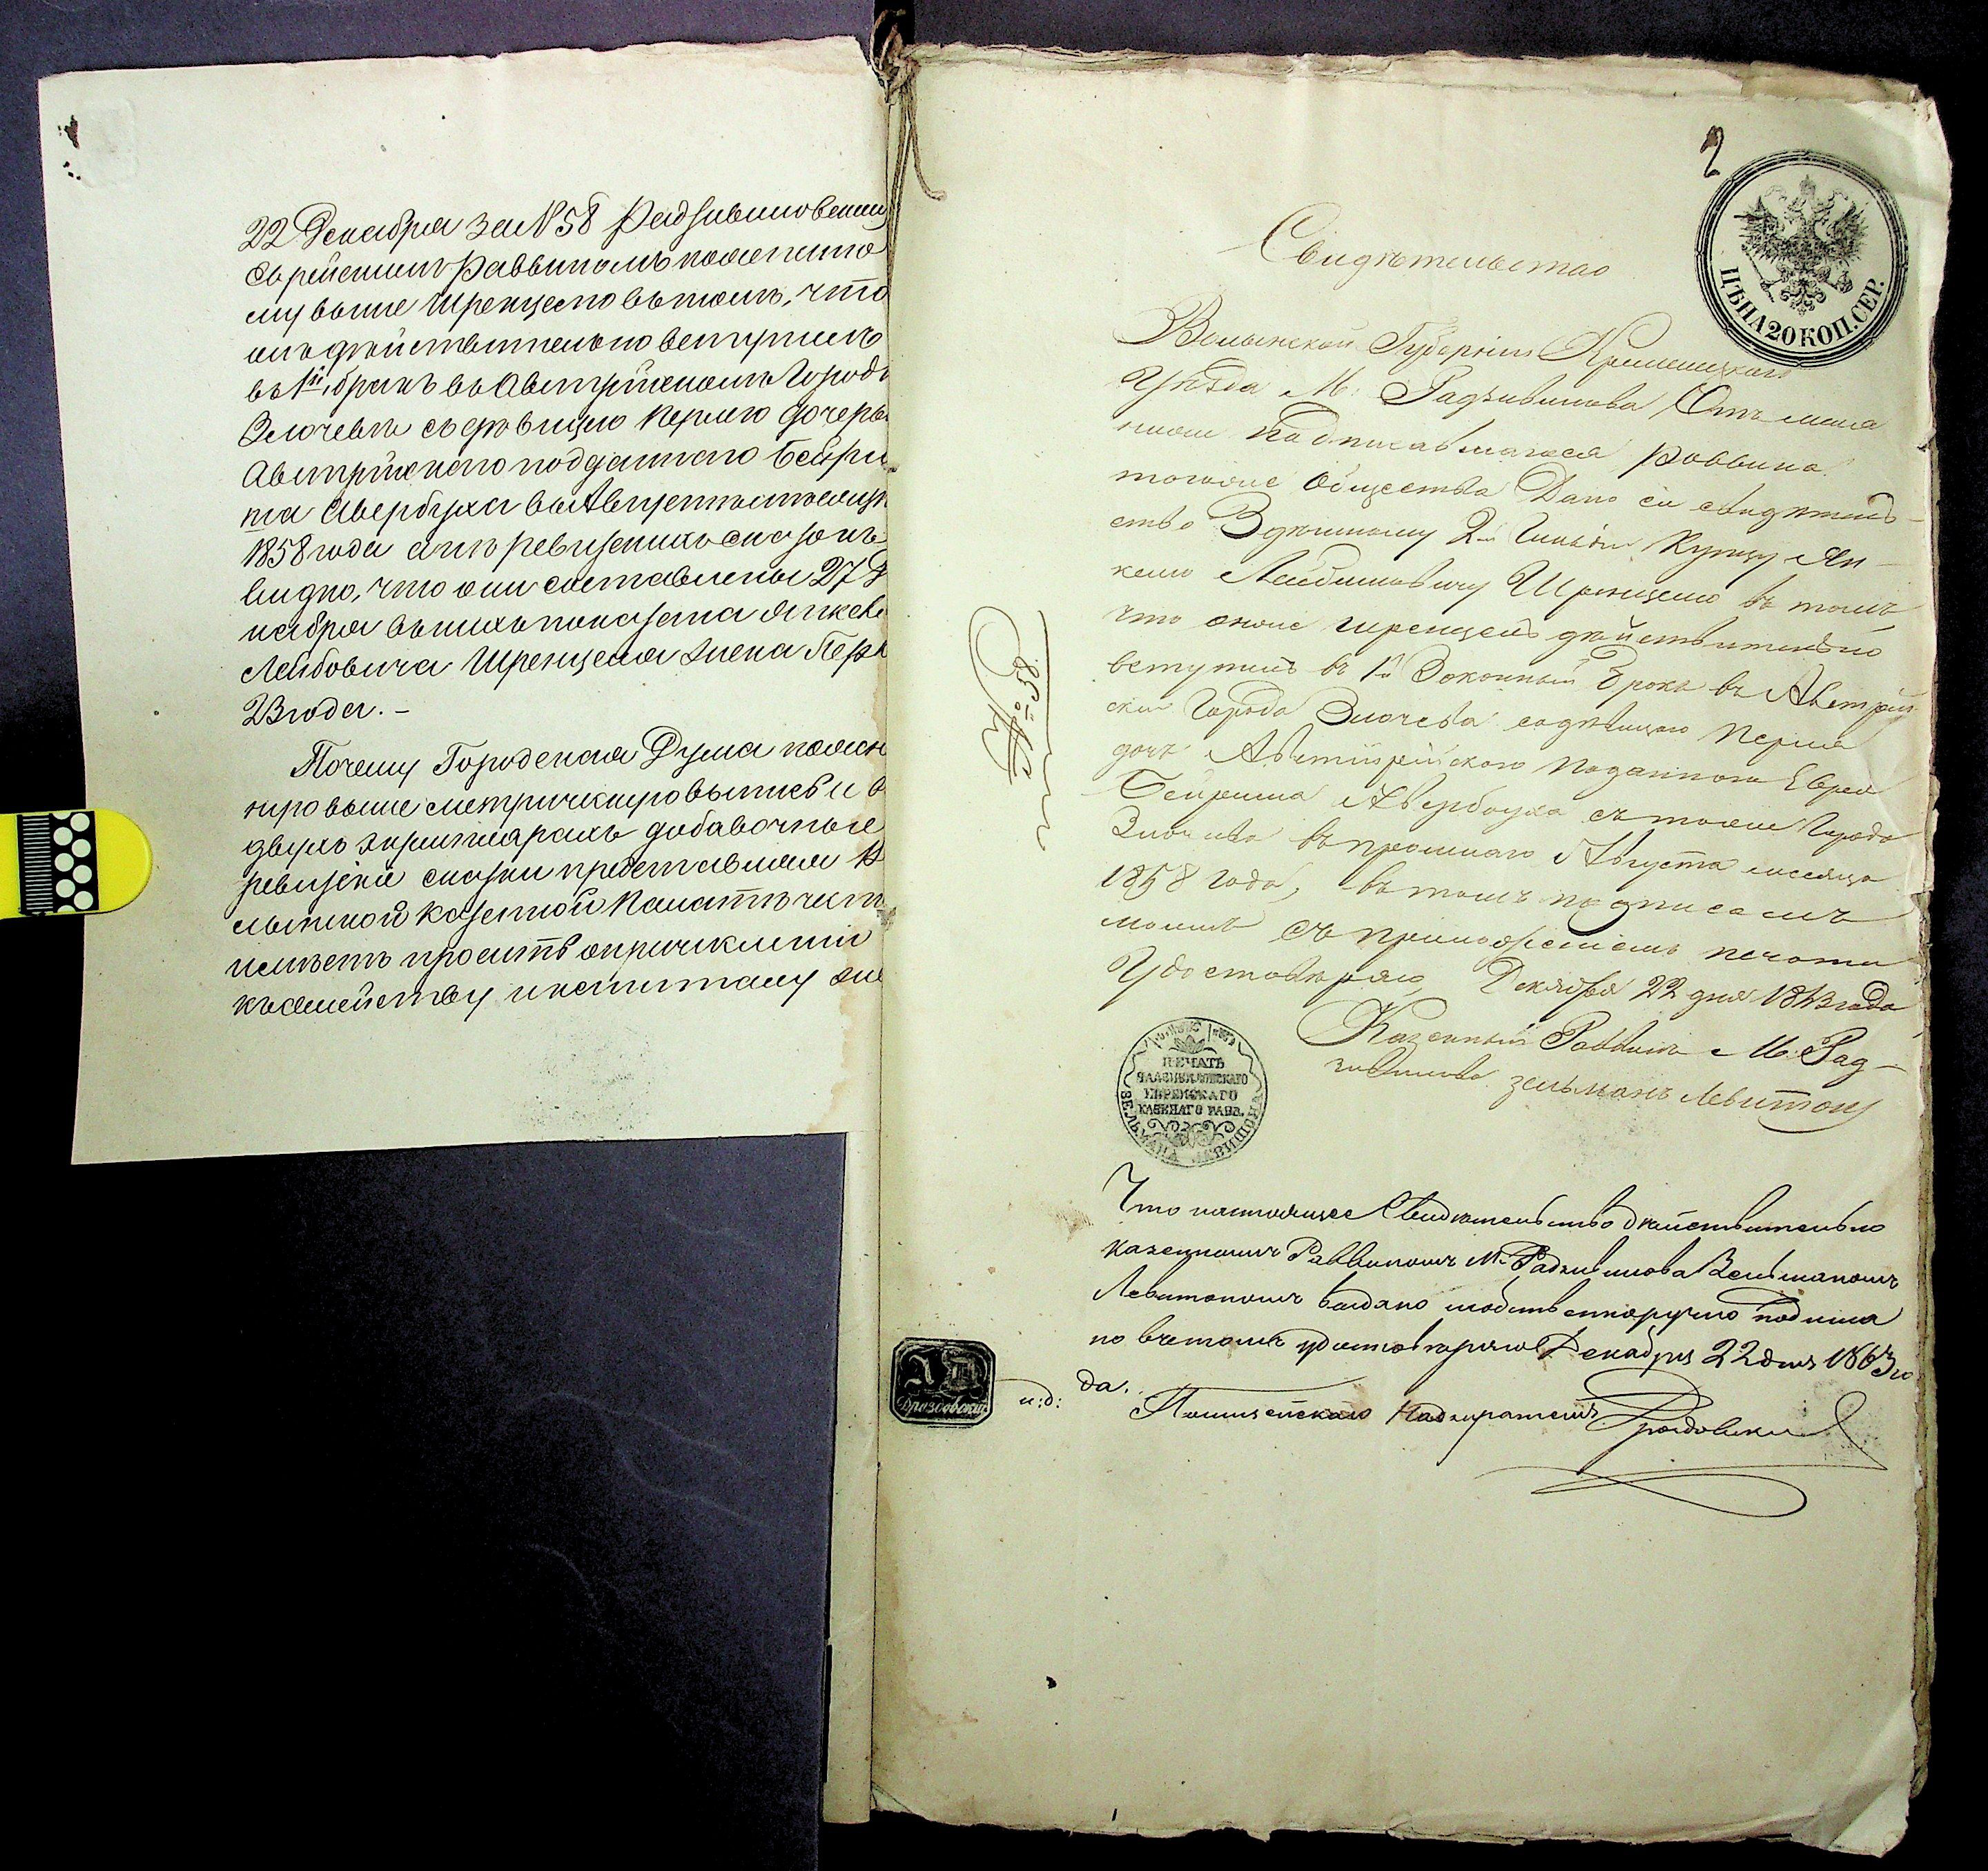 22 Декабря за № 58 Радзивиловским
Еврейскимъ Раввиномъ поименно
му выше Шренцелю въ томъ, что
онъ действительно вступилъ
въ 1й бракъ въ Австрійскомъ Городѣ
Злочевѣ съ дѣвицею Перлею дочерью
Австрійскаго подданнаго Бейри
ша Авербуха въ Августѣ мѣсяцѣ
1858 года а изъ ревизскихъ сказокъ
видно, что они составлены 27 Де
кабря въ нихъ показана Янкеля
Лейбовича Шренцеля жена Перля
23 года. —
Почему Городская Дума поимен
ную выше метрическую выпись и въ
двухъ экземплярахъ добавочные
ревизскія сказки представляя Во
лынской Казенной Палатѣ честь
имѣетъ просить о причисленіи
къ семейству и капиталу
2
ЦѢНА 20 КОП. СЕР.
Свидѣтельство
Волынской Губерніи Кременецкаго
Уѣзда М. Радзивилова Отъ ниже
подписавшагося Раввина
тогоже Общества Дано сіе свидѣтель-
ство Здѣшнему 2й Гильдіи Купцу Ян-
келю Лейбиовичу Шренцелю въ томъ,
что онъ же Шренцель дѣйствительно
вступилъ въ 1й Законный Бракъ въ Австрій
скій Города Злочева съ дѣвицею Перля
дочь Австрійскаго Подданного Еврея
Бейриша Авербуха съ тогоже Города
Злочева въ прошлаго Августа месяца
1858 года, въ томъ подписомъ
моимъ съ приложеніемъ печати
Удостовѣряю Декабря 22 дня 1863 года
Казенный Раввинъ М. Рад-
зивилова Зельманъ Левитонъ
№ 58
ПЕЧАТЬ
РАДЗИВИЛОВСКАГО
ЕВРЕЙСКАГО
КАЗЕНАГО РАВВ.
ЗЕЛЬМАНА ЛЕВИТОНА
Что настоящее Свидетельство дѣйствительно
казеннымъ Раввиномъ М. Радзивилова Зельманомъ
Левитономъ выдано и собственноручно подписа
но въ чемъ удостовѣряю Декабря 22 дня 1863 го
да.
и: д: Полицейскаго Надзирателя Дроздовскій
Дроздовскій